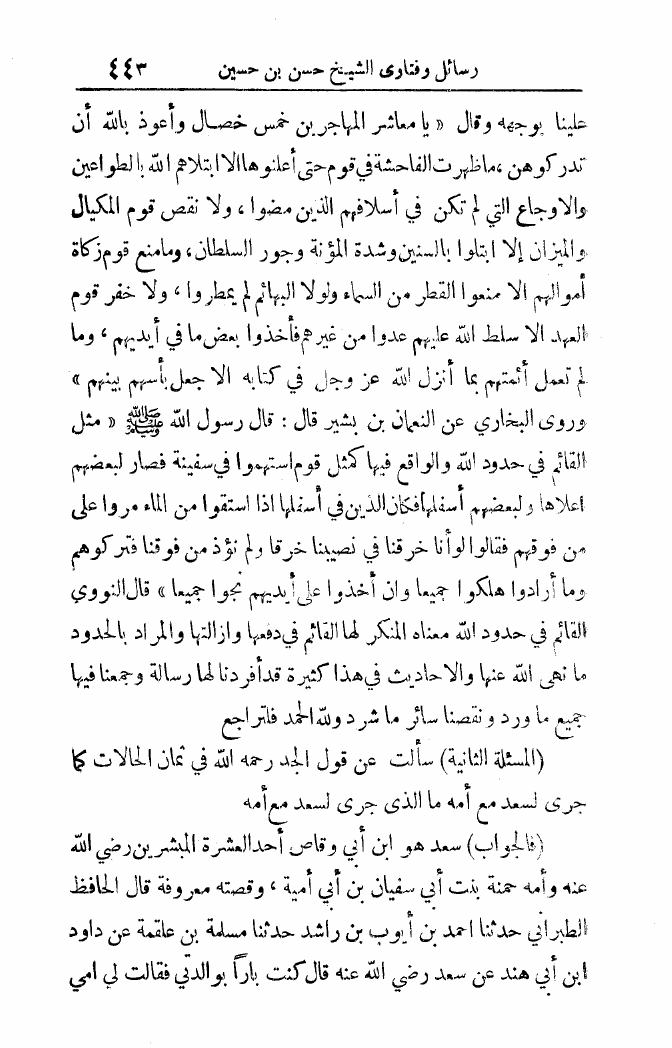 رسائل وفتاوى الشيخ حسن بن حسين ٤٤٣
علينا بوجهه وقال « يا معاشر المهاجرين خمس خصال وأعوذ بالله أن
تدركوهن ، ماظهرت الفاحشة في قوم حتى أعلنوها الا ابتلاهم الله بالطواعين
والاوجاع التي لم تكن في أسلافهم الذين مضوا ، ولا نقص قوم المكيال
والميزان إلا ابتلوا بالسنين وشدة المؤنة وجور السلطان، ومامنع قوم زكاة
أموالهم الا منعوا القطر من السماء ولولا البهائم لم يمطروا ، ولا خفر قوم
العهد الا سلط الله عليهم عدوا من غيرهم فأخذوا بعض ما في أيديهم ، وما
لم تعمل أئمتهم بما أنزل الله عز وجل في كتابه الا جعل بأسهم بينهم »
وروى البخاري عن النعمان بن بشير قال : قال رسول الله ﷺ « مثل
القائم في حدود الله والواقع فيها كمثل قوم استهموا في سفينة فصار لبعضهم
اعلاها ولبعضهم أسفلها فكان الذين في أسفلها اذا استقوا من الماء مروا على
من فوقهم فقالوا لو أنا خرقنا في نصيبنا خرقا ولم نؤذ من فوقنا فتركوهم
وما أرادوا هلكوا جميعا وان أخذوا على أيديهم نجوا جميعا » قال النووي
القائم في حدود الله معناه المنكر لها القائم في دفعها وازالتها والمراد بالحدود
ما نهى الله عنها والاحاديث في هذا كثيرة قد أفردنا لها رسالة وجمعنا فيها
جميع ما ورد ونقصنا سائر ما شرد ولله الحمد فلتراجع
(المسئلة الثانية) سألت عن قول الجد رحمه الله في ثمان الحالات كما
جرى لسعد مع أمه ما الذى جرى لسعد مع أمه
(فالجواب) سعد هو ابن أبي وقاص أحد العشرة المبشرين رضي الله
عنه وأمه حمنة بنت أبي سفيان بن أبي أمية ، وقصته معروفة قال الحافظ
الطبراني حدثنا احمد بن أيوب بن راشد حدثنا مسلمة بن علقمة عن داود
ابن أبي هند عن سعد رضي الله عنه قال كنت باراً بوالدتي فقالت لي امي